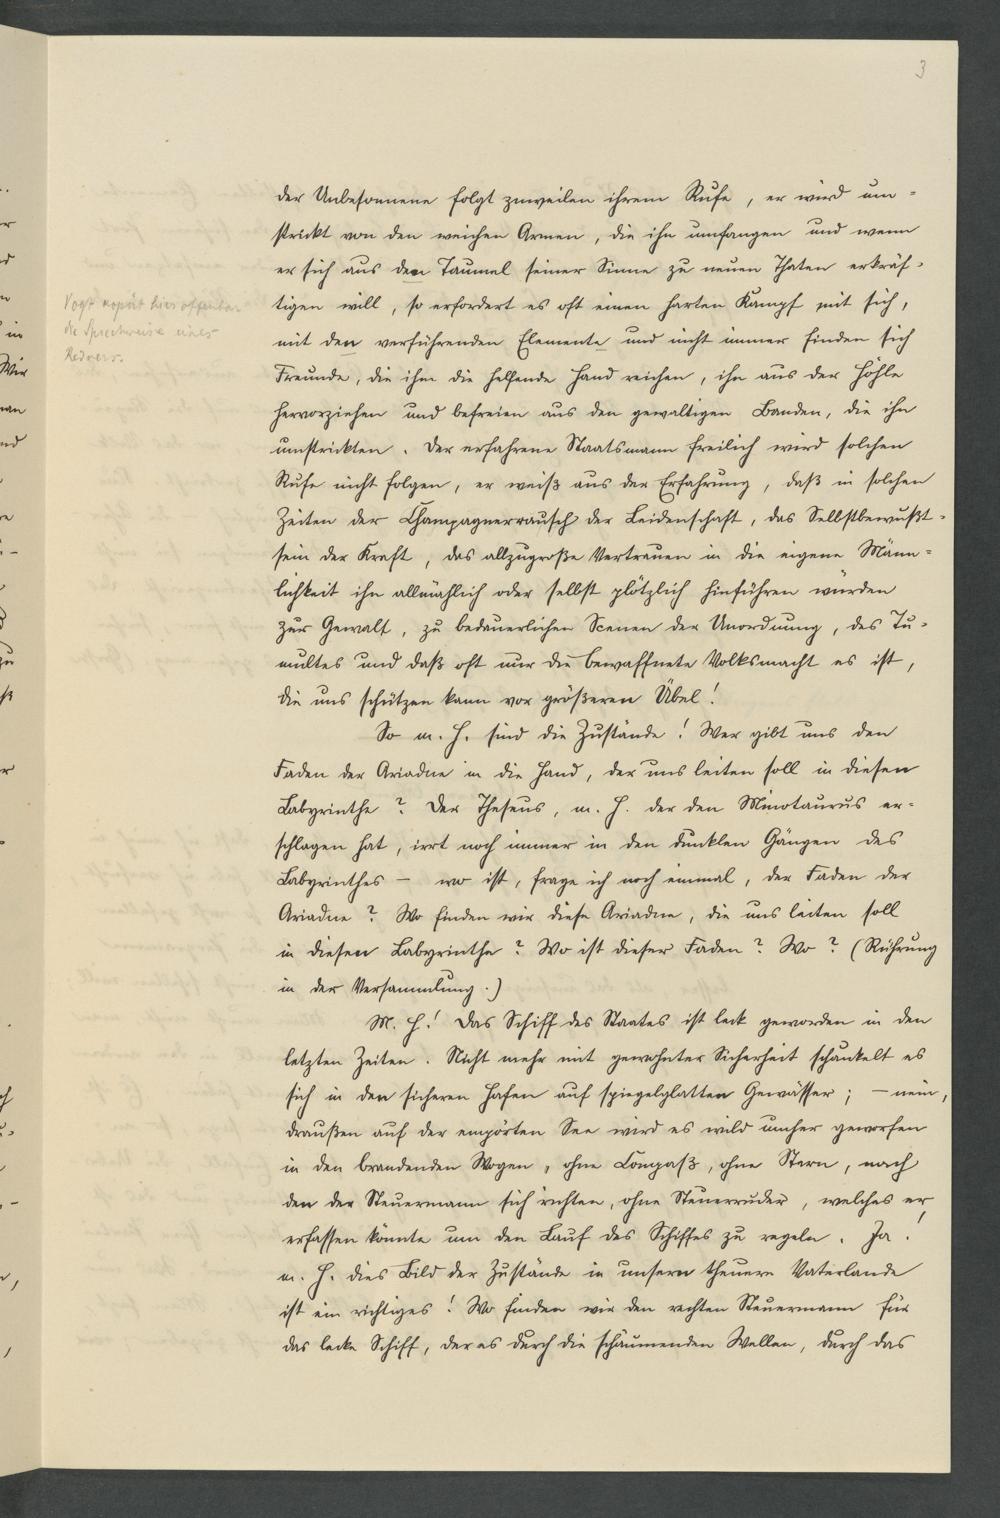 3
der Unbesonnene folgt zuweilen ihrem Rufe, er wird um=
strickt von den weichen Armen, die ihn umfangen und wenn
er sich aus dem Taumel seiner Sinne zu neuen Thaten erkräf=
tigen will, so erfordert es oft einen harten Kampf mit sich,
mit den verführenden Elemente und nicht immer finden sich
Freunde, die ihm die helfende Hand reichen, ihn aus der Höhle
hervorziehen und befreien aus den gewaltigen Banden, die ihn
umstrickten. Der erfahrene Staatsmann freilich wird solchen
Rufe nicht folgen, er weiß aus der Erfahrung, daß in solchen
Zeiten der Champagnerrausch der Leidenschaft, das Selbstbewußt=
sein der Kraft, das allzugroße Vertrauen in die eigene Männ=
lichkeit ihn allmählich oder selbst plötzlich hinführen würden
zur Gewalt, zu bedauerlichen Scenen der Unordnung, des Tu=
multes und daß oft nur die bewaffnete Volksmacht es ist,
die uns schützen kann vor größeren Übel!
So m. H. sind die Zustände! Wer gibt uns den
Faden der Ariadne in die Hand, der uns leiten soll in diesen
Labyrinthe? Der Theseus, m. H. der den Minotaurus er=
schlagen hat, irrt noch immer in den dunklen Gängen des
Labyrinthes – wo ist, frage ich noch einmal, der Faden der
Ariadne? Wo finden wir diese Ariadne, die uns leiten soll
in diesen Labyrinthe? Wo ist dieser Faden? Wo? (Rührung
in der Versammlung.)
M. H.! Das Schiff des Staates ist leck geworden in den
letzten Zeiten. Nicht mehr mit gewohnter Sicherheit schaukelt es
sich in den sicheren Hafen auf spiegelglatten Gewässer; – nein,
draußen auf der empörten See wird es wild umher geworfen
in den brandenden Wogen, ohne Compaß, ohne Stern, nach
den der Steuermann sich richten, ohne Steuerruder, welches er
erfassen könnte um den Lauf des Schiffes zu regeln. Ja!
m. H. dies Bild der Zustände in unsern theuern Vaterlande
ist ein richtiges! Wo finden wir den rechten Steuermann für
das lecke Schiff, der es durch die schäumenden Wellen, durch das
Vogt kopiert hier offenbar
die Sprechweise eines
Redners.